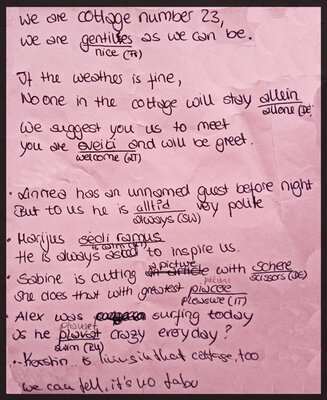 We are cottage number 23,
we are gentilles as we can be.
nice (FR)
If the weather is fine,
No one in the cottage will stay allein
allone (DE)
We suggest you us to meet
you are sveiki and will be greet.
welcome (LT)
• Linnea has an unnamed guest before night
But to us he is alltid very polite
always (SW)
• Marijus
He is always to inspire us.
picture
• Sabine is cutting an article with schere
scissors (DE)
She does that with greatest piacere
pleasure (IT)
• Alex was surfing today
is he crazy everyday?
swim (RU)
• Kerstin is living in that cottage, too
we can tell, it's no tabu